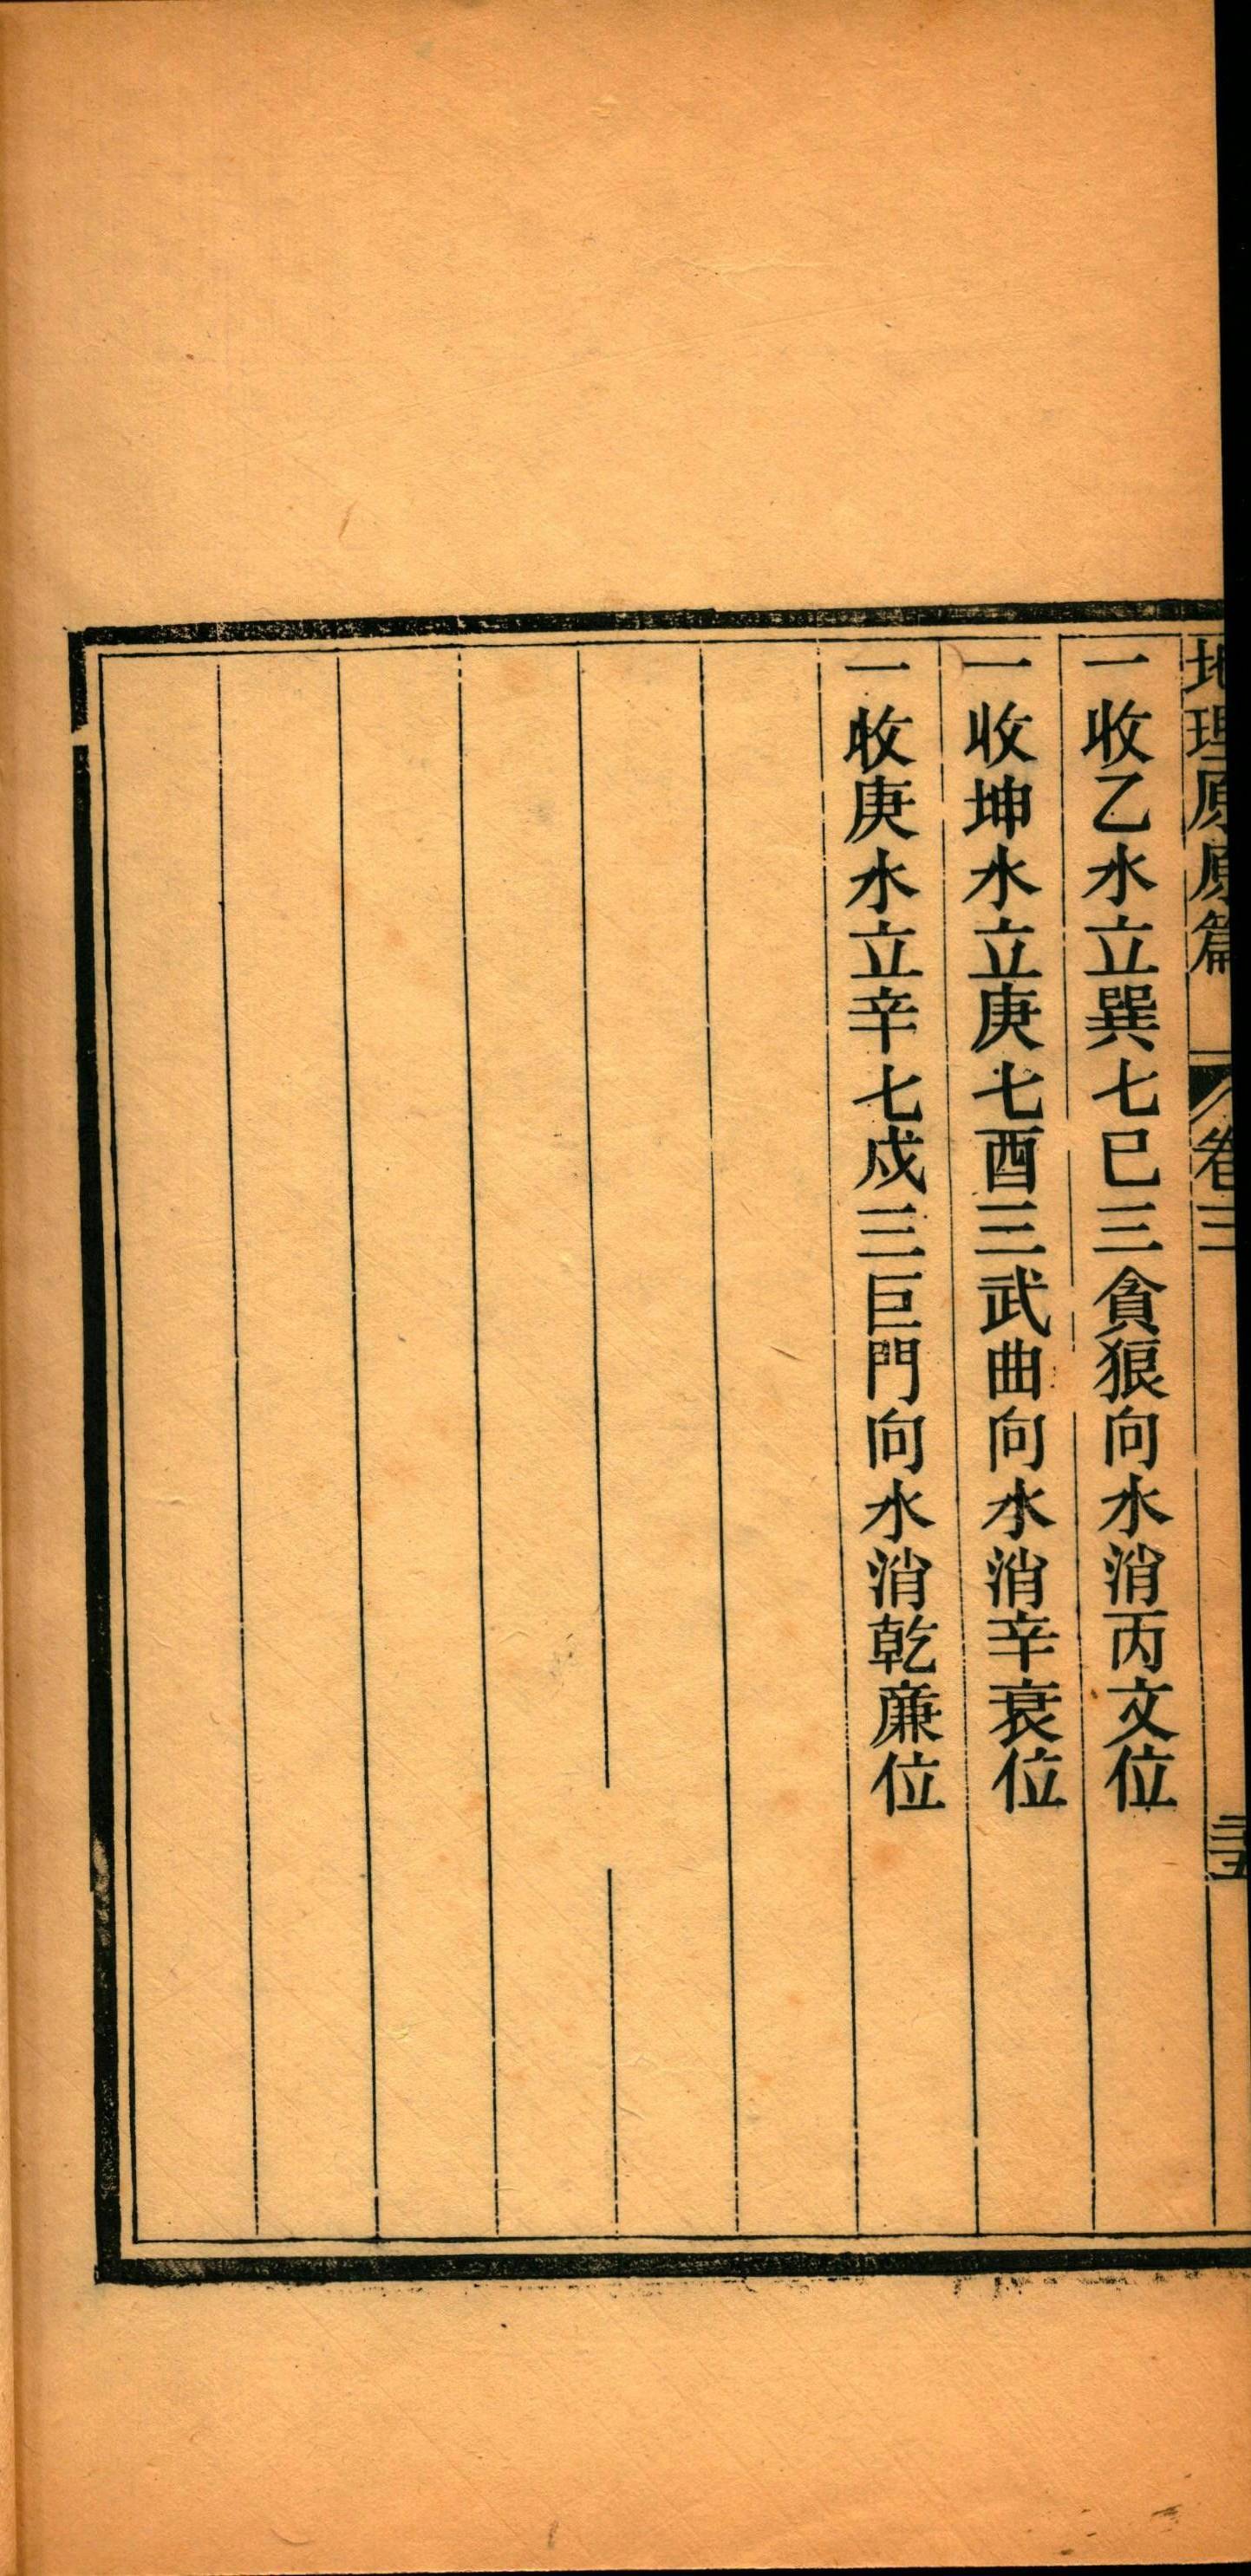 地理原原篇 卷三 三五
一收乙水立巽七巳三貪狼向水消丙文位
一收坤水立庚七酉三武曲向水消辛衰位
一收庚水立辛七戍三巨門向水消乾廉位